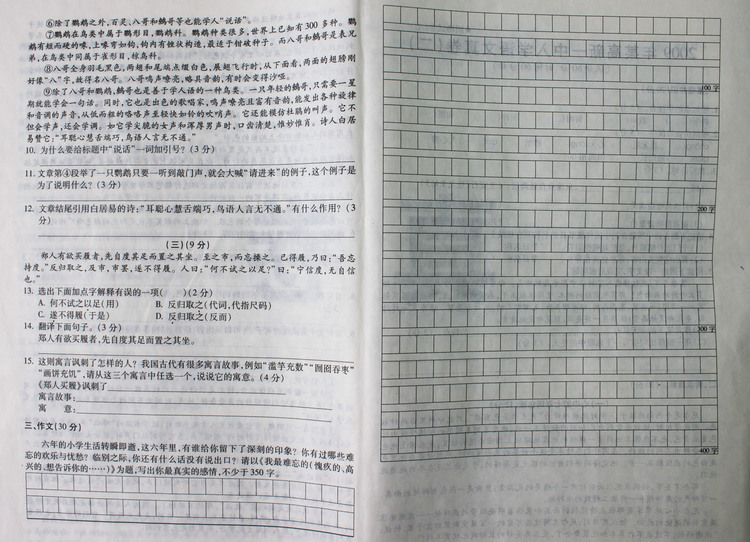 ⑥除了鹦鹉之外,百灵、八哥和鹩哥等也能学人“说话”。
⑦鹦鹉在鸟类中属于鹦形目,鹦鹉科。鹦鹉种类很多,世界上已知有300多种。鹦
鹉有短而硬的喙,上喙弯如钩,钩内有锉状构造,最适于钳破种子。而八哥和鹩哥是表兄
弟,在鸟类中同属于雀形目,椋鸟科。
⑧八哥全身羽毛黑色,两翅和尾端点缀白色,展翅飞行时,从下面看,两面的翅膀刚
好像“八”字,故得名八哥。八哥鸣声嘹亮,略具音韵,有时会变得沙哑。
⑨除了八哥和鹦鹉,鹩哥也是善于学人语的一种鸟类。一只年轻的鹩哥,只需要一星
期就能学会一句话。同时,它也是出色的歌唱家,鸣声嘹亮且富有音韵,能发出各种旋律
和音调的声音,从低而粗的咯咯声至轻快如铃的吹哨声。它还能模仿杜鹃的叫声。它不
但会学声,还会学调。如它学尖脆的女声和浑厚男声时,口齿清楚,惟妙惟肖。诗人白居
易赞它:“耳聪心慧舌端巧,鸟语人言无不通。”
10. 为什么要给标题中“说话”一词加引号?(3分)
11. 文章第④段举了一只鹦鹉只要一听到敲门声,就会大喊“请进来”的例子,这个例子是
为了说明什么?(3分)
12. 文章结尾引用白居易的诗:“耳聪心慧舌端巧,鸟语人言无不通。”有什么作用?(3
分)
(三)(9分)
郑人有欲买履者,先自度其足而置之其坐。至之市,而忘操之。已得履,乃曰:“吾忘
持度。”反归取之,及市,市罢,遂不得履。人曰:“何不试之以足?”曰:“宁信度,无自信
也。”
13. 选出下面加点字解释有误的一项( )(2分)
A. 何不试之以足(用) B. 反归取之(代词,代指尺码)
C. 遂不得履(于是) D. 反归取之(反而)
14. 翻译下面句子。(3分)
郑人有欲买履者,先自度其足而置之其坐。
15. 这则寓言讽刺了怎样的人?我国古代有很多寓言故事,例如“滥竽充数”“囫囵吞枣”
“画饼充饥”,请从这三个寓言中任选一个,说说它的寓意。(4分)
《郑人买履》讽刺了
寓言故事:
寓 意:
三、作文(30分)
六年的小学生活转瞬即逝,这六年里,有谁给你留下了深刻的印象?你有过哪些难
忘的欢乐与忧愁?临别之际,你还有什么话没有说出口?请以《我最难忘的(愧疚的、高
兴的、想告诉你的……)》为题,写出你最真实的感情,不少于350字。
100字
200字
300字
400字